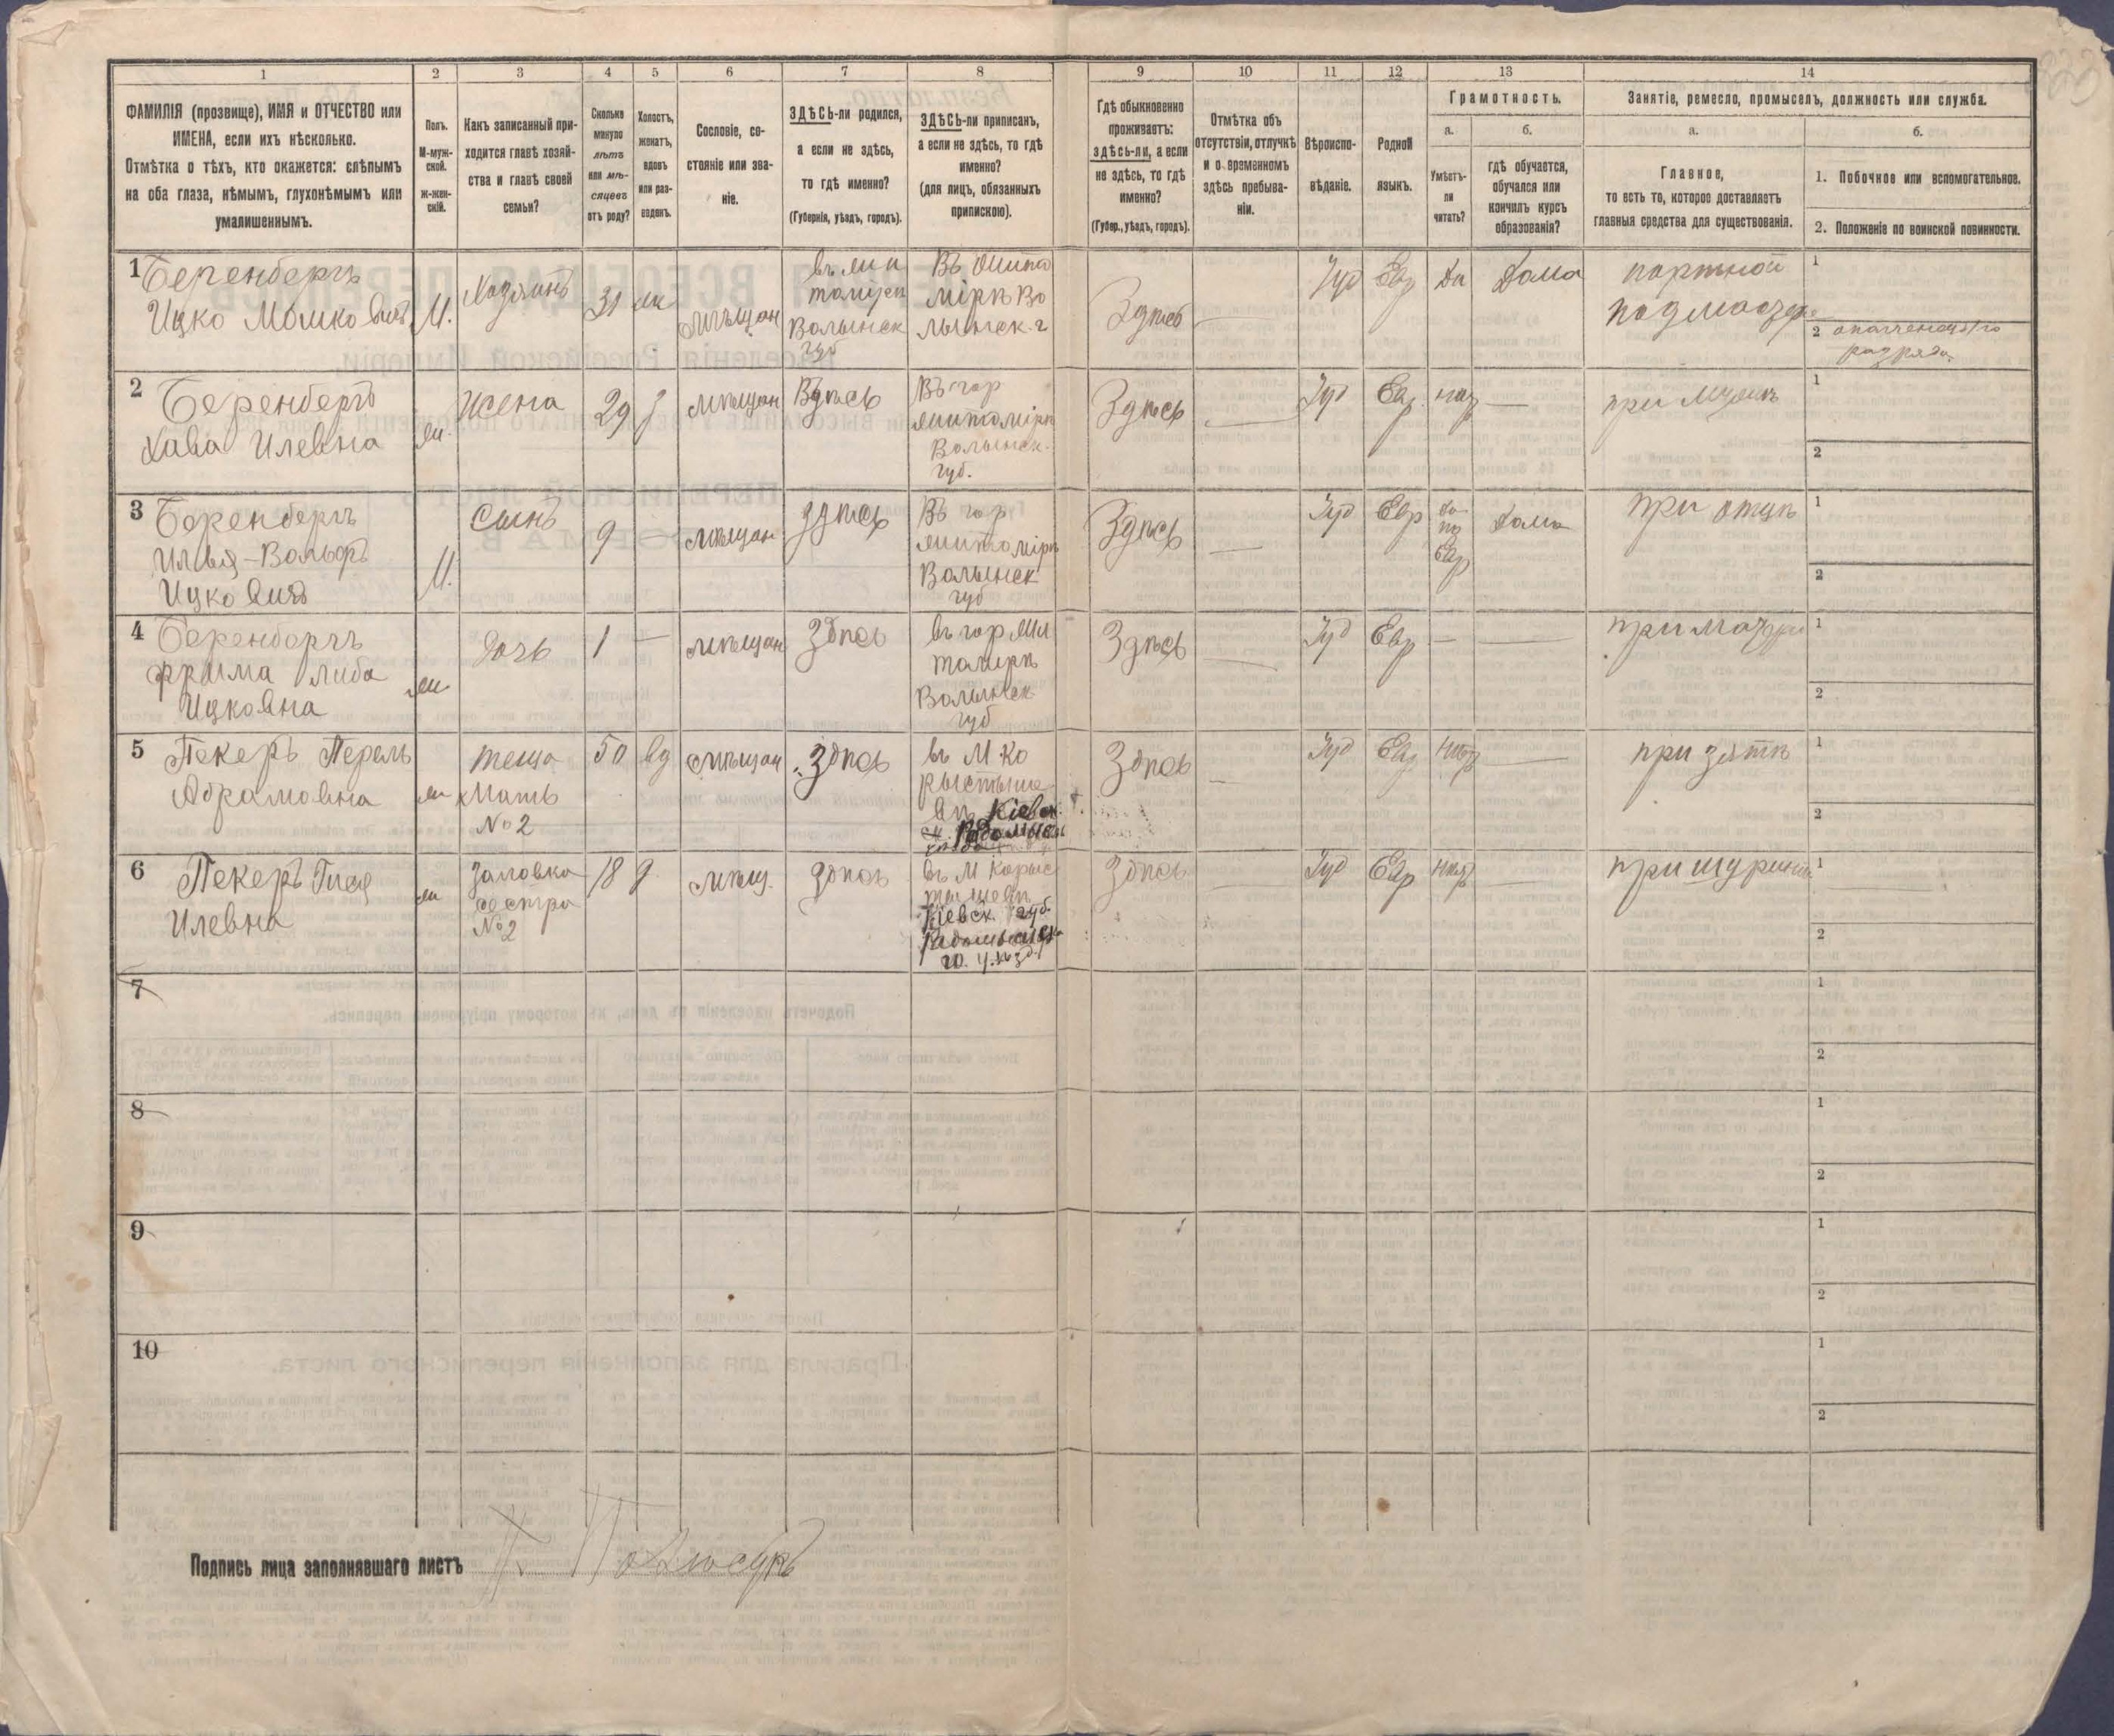 1 2 3 4 5 6 7 8 9 10 11 12 13 14
ФАМИЛІЯ (прозвище), ИМЯ и ОТЧЕСТВО или
ИМЕНА, если ихъ нѣсколько.
Отмѣтка о тѣхъ, кто окажется: слѣпымъ
на оба глаза, нѣмымъ, глухонѣмымъ или
умалишеннымъ.
Полъ.
М-муж-
ской.
ж-жен-
скій.
Какъ записанный при-
ходится главѣ хозяй-
ства и главѣ своей
семьи?
Сколько
минуло
лѣтъ
или мѣ-
сяцевъ
отъ роду?
Холостъ,
женатъ,
вдовъ
или раз-
веденъ.
Сословіе, со-
стояніе или зва-
ніе.
ЗДѢСЬ-ли родился,
а если не здѣсь,
то гдѣ именно?
(Губернія, уѣздъ, городъ).
ЗДѢСЬ-ли приписанъ,
а если не здѣсь, то гдѣ
именно?
(для лицъ, обязанныхъ
припискою).
Гдѣ обыкновенно
проживаетъ:
здѣсь-ли, а если
не здѣсь, то гдѣ
именно?
(Губер., уѣздъ, городъ).
Отмѣтка объ
отсутствіи, отлучкѣ
и о временномъ
здѣсь пребыва-
ніи.
Вѣроиспо-
вѣданіе.
Родной
языкъ.
Грамотность.
а.
Умѣетъ-
ли
читать?
б.
гдѣ обучается,
обучался или
кончилъ курсъ
образованія?
Занятіе, ремесло, промыселъ, должность или служба.
а.
Главное,
то есть то, которое доставляетъ
главныя средства для существованія.
б.
1. Побочное или вспомогательное.
2. Положеніе по воинской повинности.
1 Беренбергъ
Ицко Мошковичъ
М.
Хозяинъ
31
жи
мѣщан
Волынск
губ
Въ Жито
мірѣ Во
лынск. г
Здѣсь
Іуд
Евр
Да
Дома
портной
1
2 ополченецъ 1го
разряда
2 Беренбергъ
Хава Илевна
жи.
Жена
29
мѣщан
Здѣсь
Въ гор
Житомірѣ
Волынск.
губ.
Здѣсь
Іуд
Евр.
при мужѣ
1
2
3 Беренбергъ
Илья-Вольфъ
Ицковичъ
М.
Сынъ
9
мѣщан
здѣсь
Въ гор
Житомірѣ
Волынск
губ
Здѣсь
Іуд
Евр
да
по
Евр
Дома
при отцѣ
1
2
4 Беренбергъ
Фрима Либа
Ицковна
жи.
Дочь
1
мѣщан
Здѣсь
въ гор Жи
томирѣ
Волынск
губ
Здѣсь
Іуд
Евр
при матери
1
2
5 Пекеръ Перель
Абрамовна
жи
теща
Мать
№ 2
50
вд
мѣщан
Здѣсь
въ М Ко
рыстыше
вѣ Кіевск
Радомысл
Здѣсь
Іуд
Евр
при зятѣ
1
2
6 Пекеръ Гися
Илевна
жи
Золовка
сестра
№ 2
18
мѣщ.
здѣсь
въ М Корыс
тышевѣ
Кіевск. губ.
Радомысльск
го. уѣзд.
Здѣсь
Іуд
Евр
при шуринѣ
1
2
7
1
2
8
1
2
9
1
2
10
1
2
Подпись лица заполнявшаго листъ